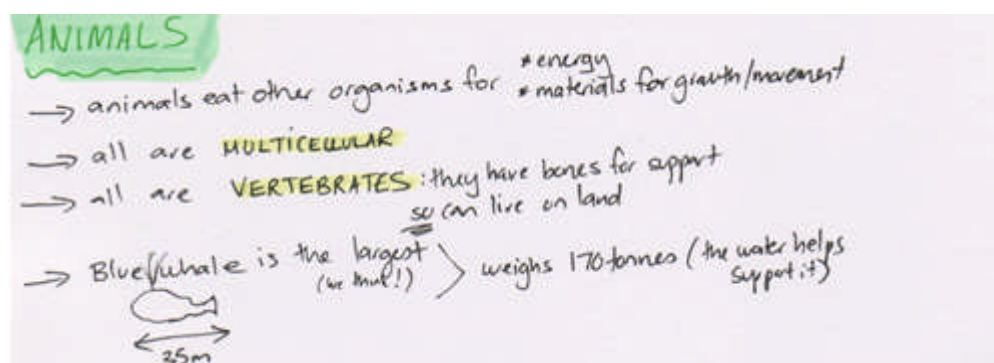 ANIMALS
→ animals eat other organisms for * energy
* materials for growth/movement
→ all are MULTICELLULAR
→ all are VERTEBRATES: they have bones for support
so can live on land
→ Blue whale is the largest
(we think!)
weighs 170 tonnes (the water helps
support it)
35m